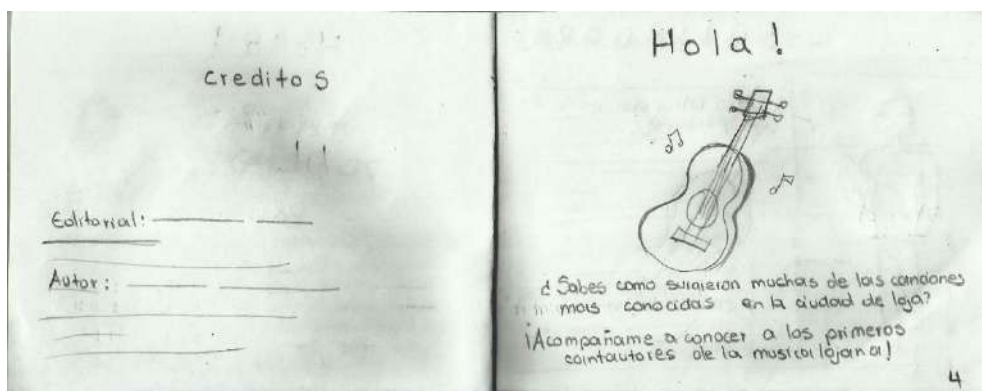 creditos
Editorial:
Autor:
Hola!
¿Sabes como surgieron muchas de las canciones
mas conocidas en la ciudad de loja?
¡Acompañame a conocer a los primeros
cantautores de la musica lojana!
4